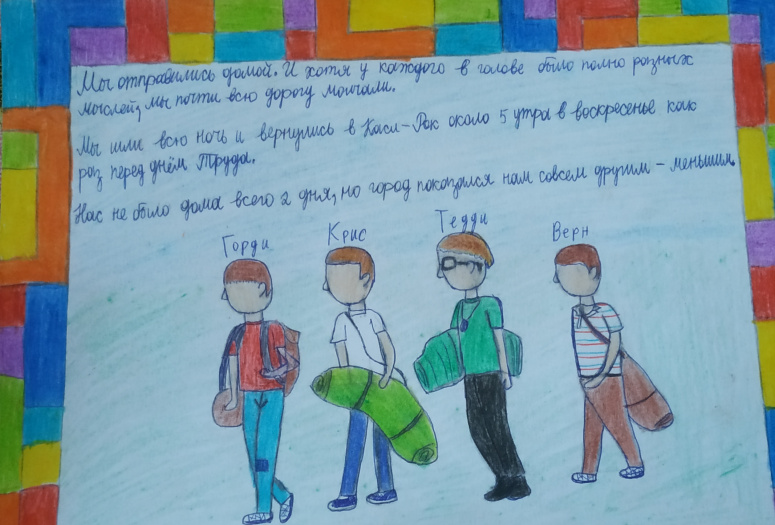 Мы отправились домой. И хотя у каждого в голове было полно разных
мыслей, мы почти всю дорогу молчали.
Мы шли всю ночь и вернулись в Касл-Рок около 5 утра в воскресенье как
раз перед днём Труда.
Нас не было дома всего 2 дня, но город показался нам совсем другим - меньшим.
Горди Крис Тедди Верн